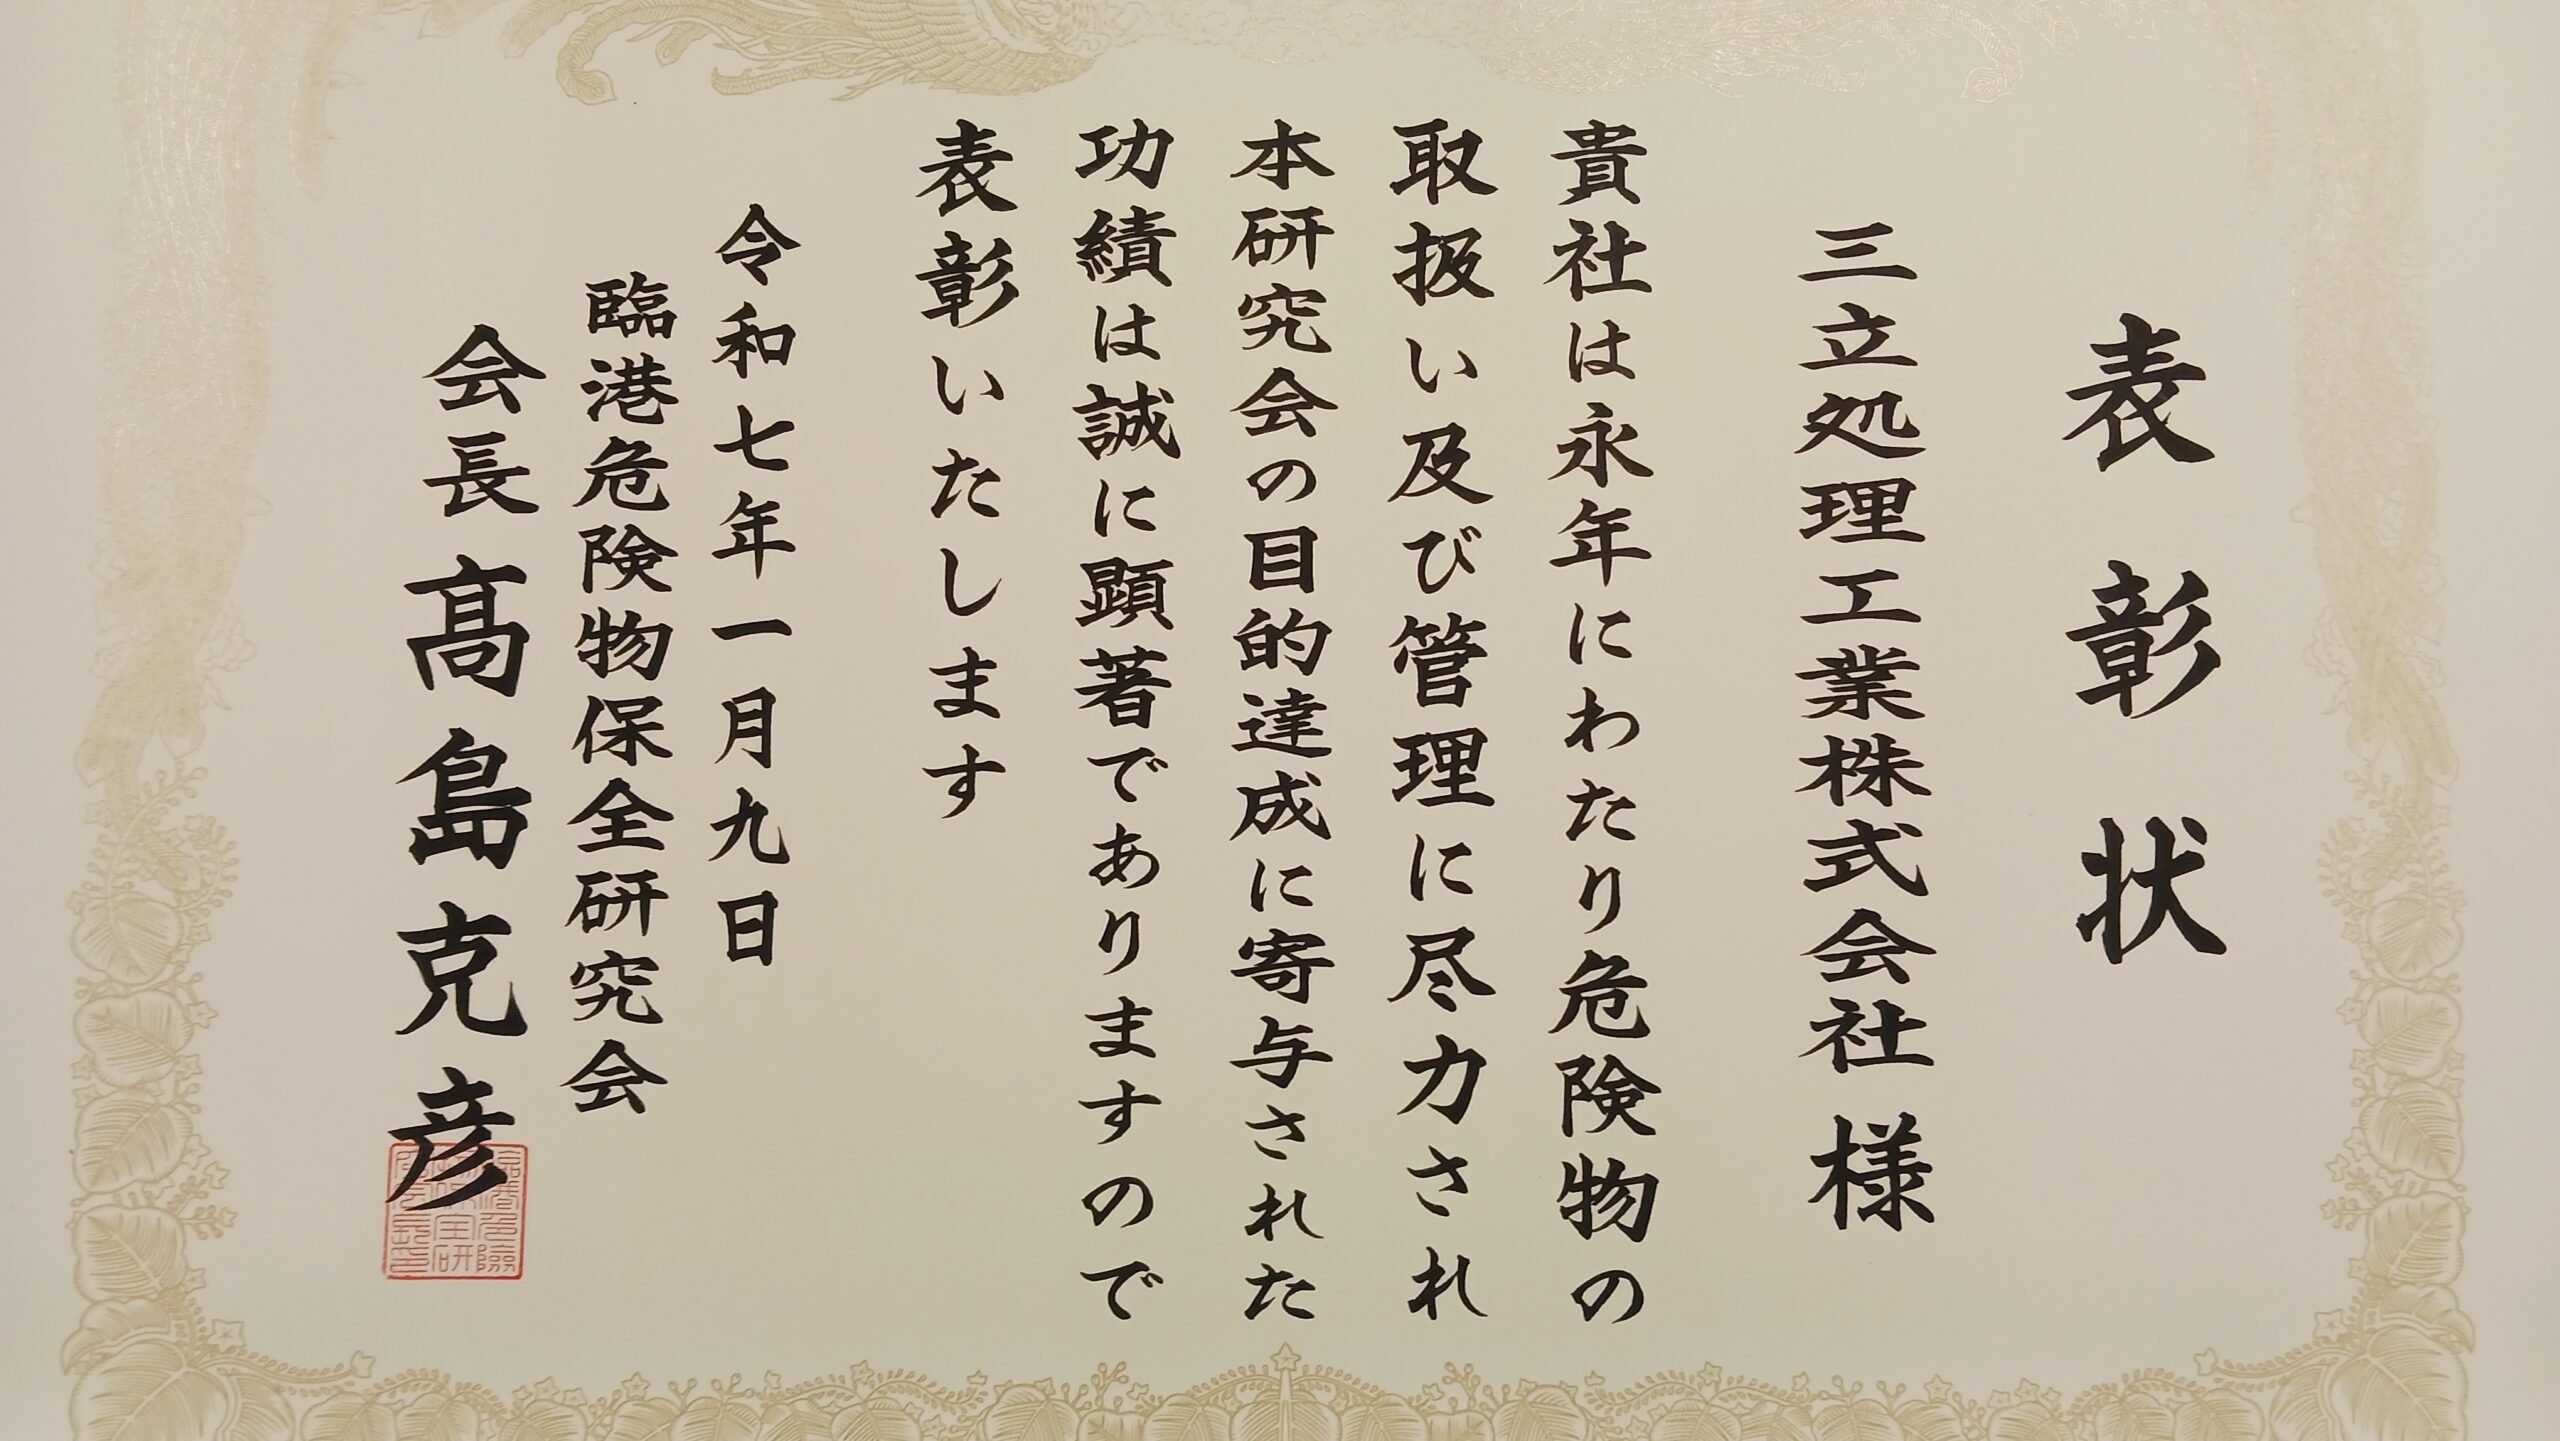 表彰状
三立処理工業株式会社様
貴社は永年にわたり危険物の
取扱い及び管理に尽力され
本研究会の目的達成に寄与された
功績は誠に顕著でありますので
表彰いたします
令和七年一月九日
臨港危険物保全研究会
会長髙島克彦